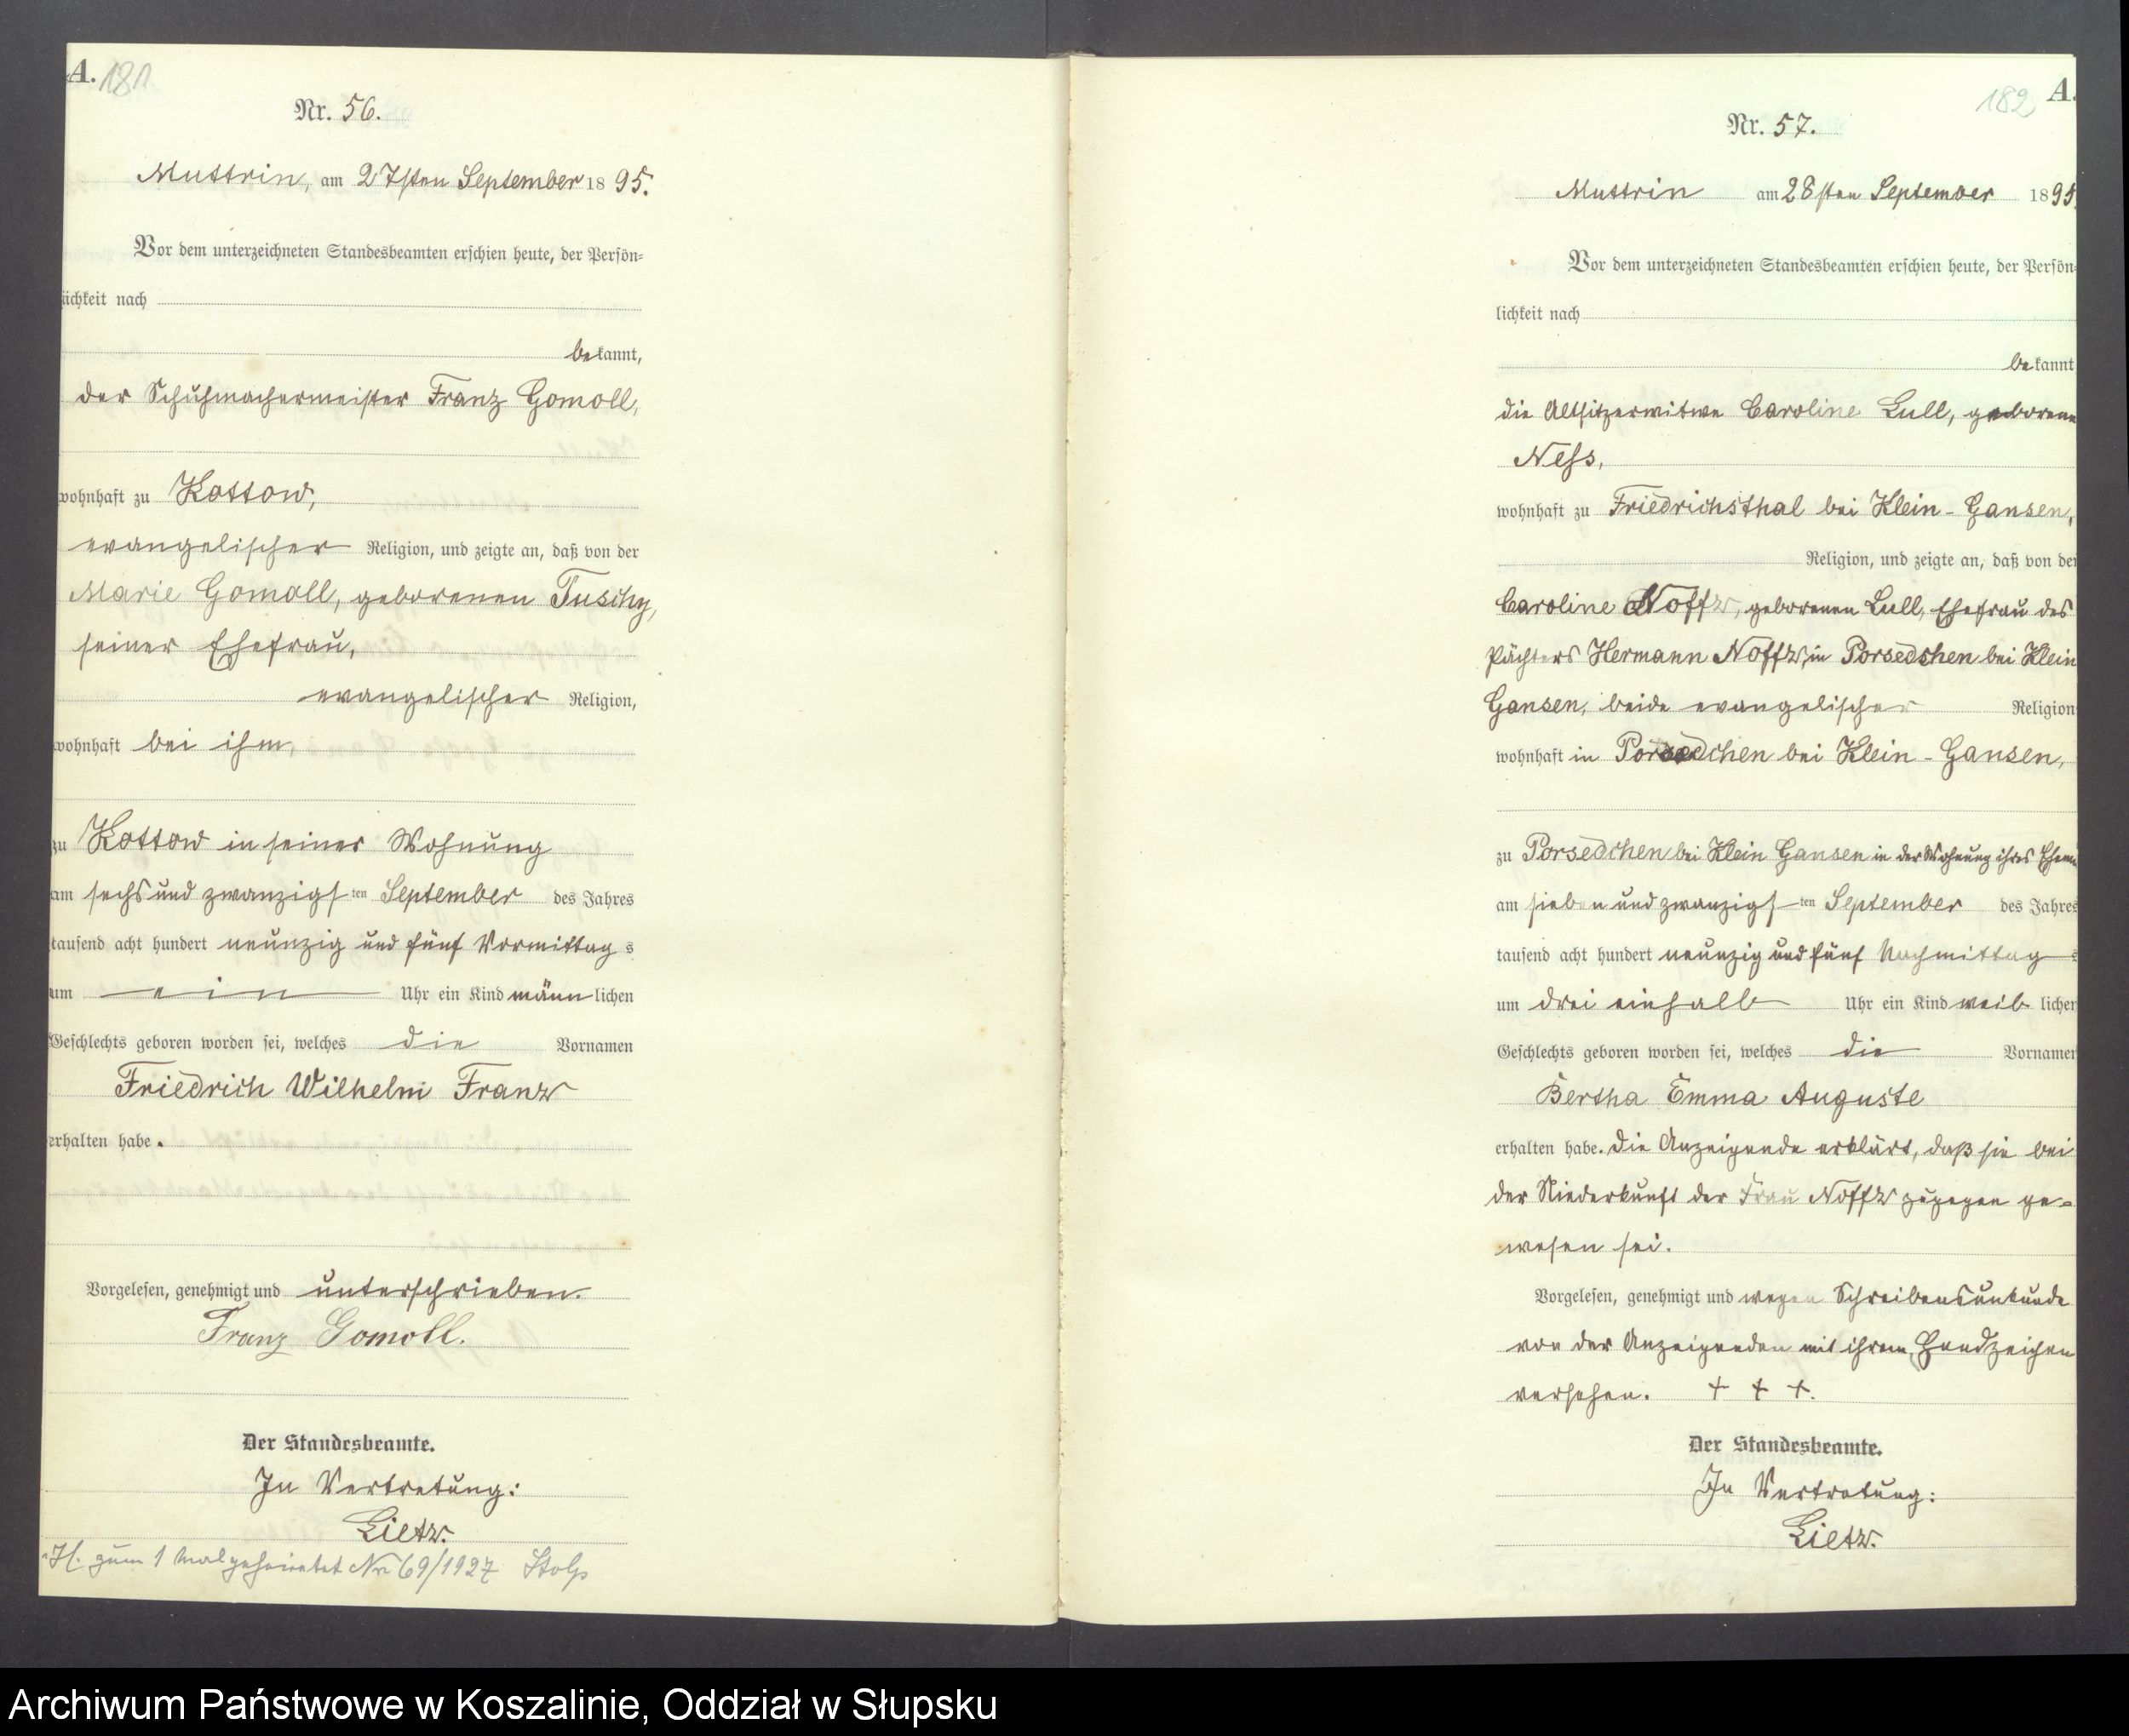 A. 181
Nr. 56.
Muttrin, am 27sten September 1895.
Vor dem unterzeichneten Standesbeamten erschien heute, der Persön-
lichkeit nach
bekannt,
der Schuhmachermeister Franz Gomoll,
wohnhaft zu Kottow,
evangelischer Religion, und zeigte an, daß von der
Marie Gomoll, geborenen Tuschy,
seiner Ehefrau,
evangelischer Religion,
wohnhaft bei ihm,
zu Kottow in seiner Wohnung
am sechs und zwanzigsten September des Jahres
tausend acht hundert neunzig und fünf Vormittags
um ein Uhr ein Kind männlichen
Geschlechts geboren worden sei, welches die Vornamen
Friedrich Wilhelm Franz
erhalten habe.
Vorgelesen, genehmigt und unterschrieben.
Franz Gomoll.
Der Standesbeamte.
In Vertretung:
Lietz.
H. zum 1 Mal geheiratet Nr 69/1927 Stolp
182 A.
Nr. 57.
Muttrin am 28sten September 1895
Vor dem unterzeichneten Standesbeamten erschien heute, der Persön-
lichkeit nach
bekannt
die Altsitzerwitwe Caroline Lull, geborene
Ness,
wohnhaft zu Friedrichsthal bei Klein-Gansen,
Religion, und zeigte an, daß von der
Caroline Noffz, geborenen Lull, Ehefrau des
Pächters Hermann Noffz, in Porsedchen bei Klein
Gansen, beide evangelischer Religion
wohnhaft in Porsedchen bei Klein-Gansen,
zu Porsedchen bei Klein Gansen in der Wohnung ihres Ehem
am sieben und zwanzigsten September des Jahres
tausend acht hundert neunzig und fünf Nachmittags
um drei einhalb Uhr ein Kind weiblichen
Geschlechts geboren worden sei, welches die Vornamen
Bertha Emma Auguste
erhalten habe. Die Anzeigende erklärt, daß sie bei
der Niederkunft der Frau Noffz zugegen ge-
wesen sei.
Vorgelesen, genehmigt und wegen Schreibensunkunde
von der Anzeigenden mit ihrem Handzeichen
versehen. + + +.
Der Standesbeamte.
In Vertretung:
Lietz.
Archiwum Państwowe w Koszalinie, Oddział w Słupsku